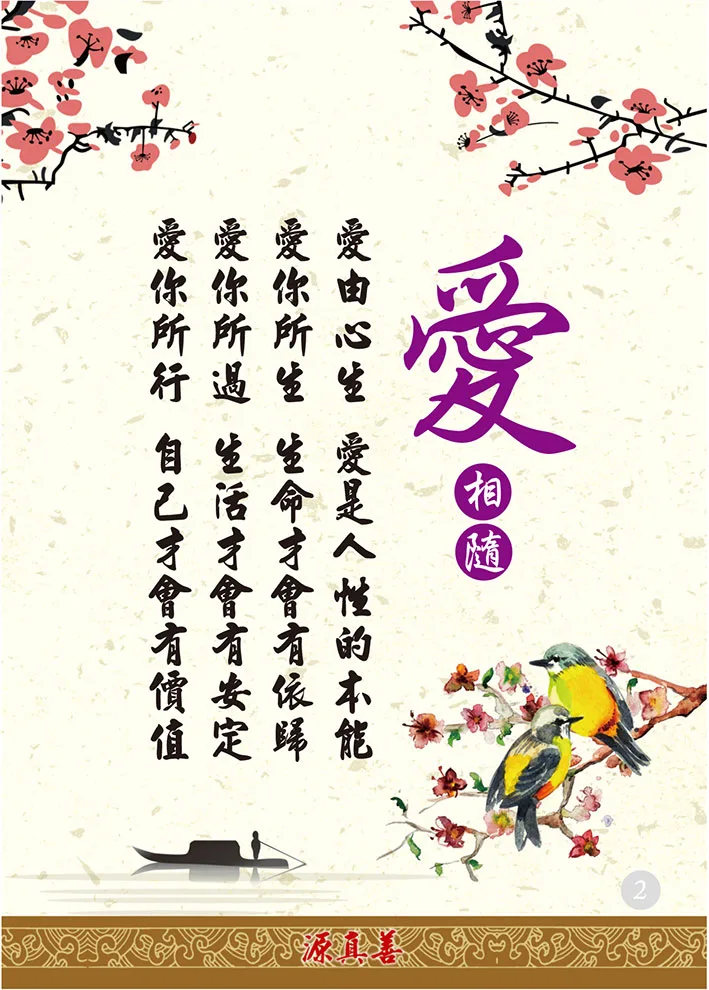 愛
相隨
愛由心生 愛是人性的本能
愛你所生 生命才會有依歸
愛你所過 生活才會有安定
愛你所行 自己才會有價值
2
源真善